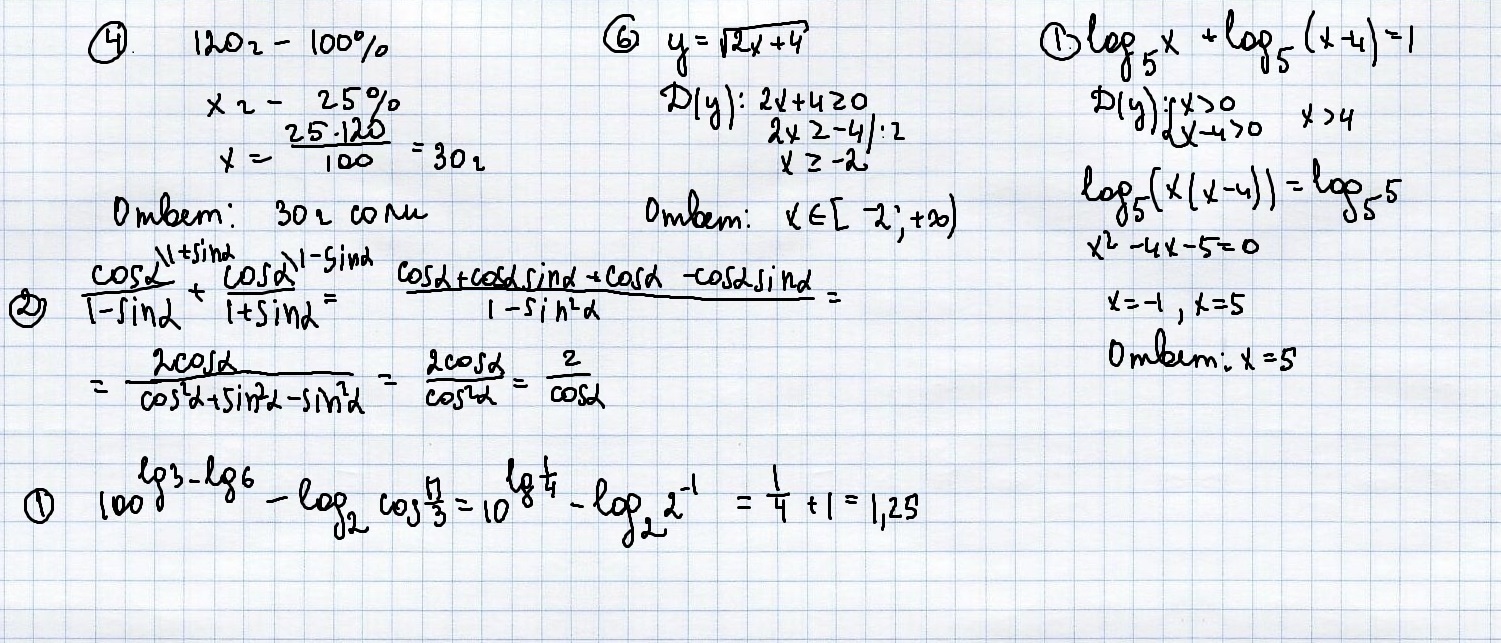 ④ 120 г – 100%
x г – 25%
x = 25·120/100 = 30 г
Ответ: 30 г соли
⑥ y = √(2x+4)
D(y): 2x+4≥0
2x ≥ -4 /:2
x ≥ -2
Ответ: x∈[-2; +∞)
① log₅x + log₅(x-4)=1
D(y): {x>0 x-4>0 x>4
log₅(x(x-4)) = log₅5
x² -4x-5=0
x=-1, x=5
Ответ: x=5
② cosα\1+sinα/(1-sinα) + cosα\1-sinα/(1+sinα) = (cosα+cosαsinα+cosα -cosαsinα)/(1-sin²α) =
= 2cosα/(cos²α+sin²α-sin²α) = 2cosα/cos²α = 2/cosα
① 100^(lg3-lg6) - log₂ cos π/3 = 10^(lg 1/4) - log₂ 2⁻¹ = 1/4 + 1 = 1,25